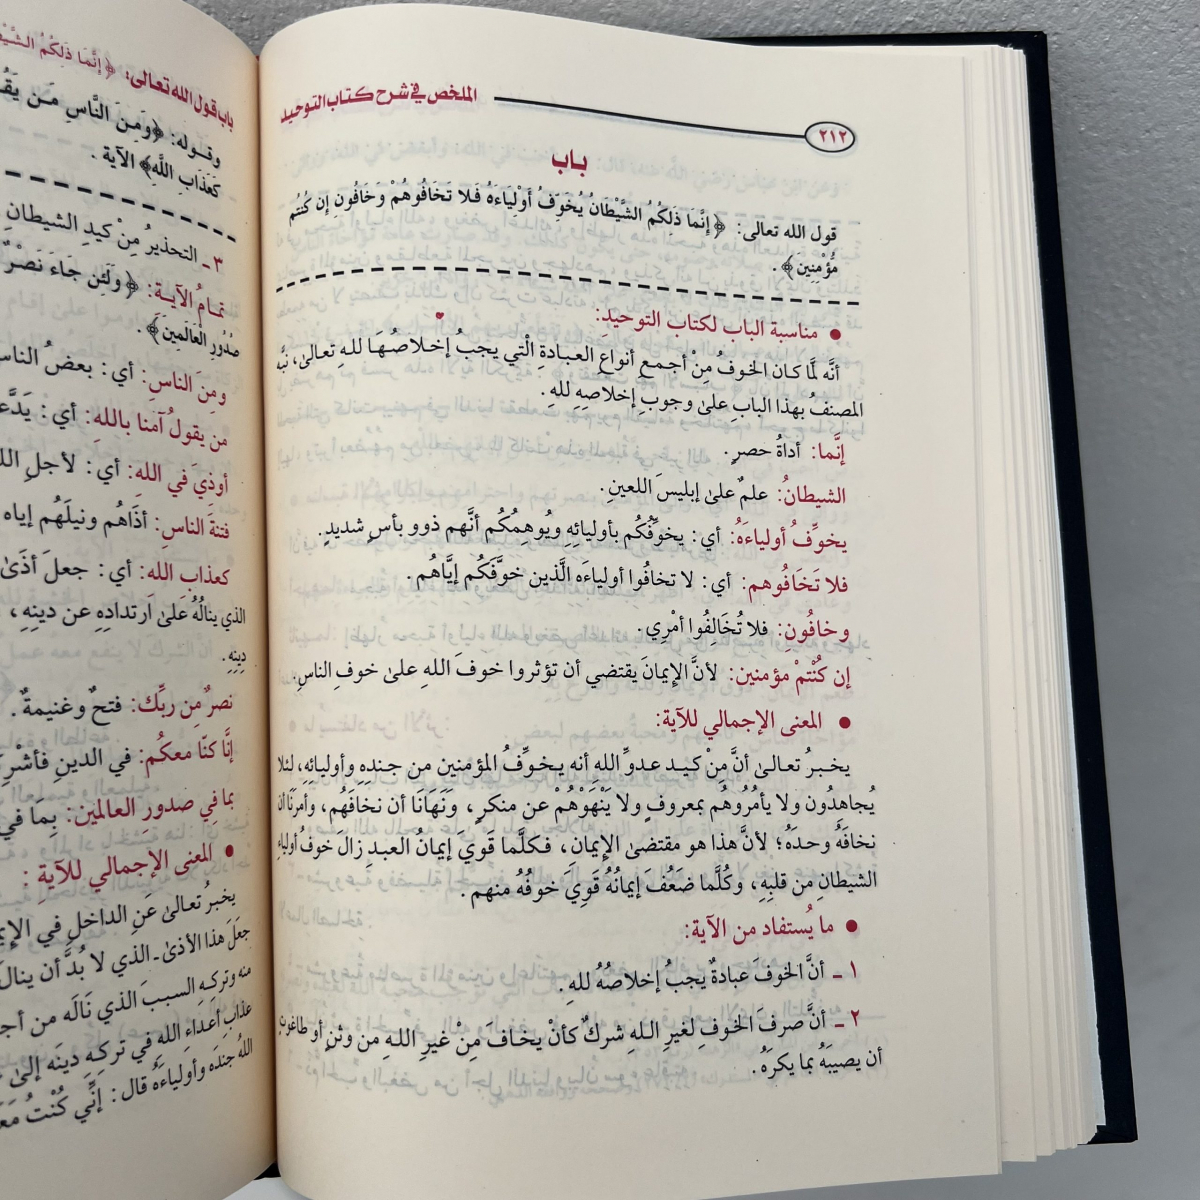 الملخص في شرح كتاب التوحيد
٢١٢
باب
قول الله تعالى: ﴿إِنَّمَا ذَلِكُمُ الشَّيْطَانُ يُخَوِّفُ أَوْلِيَاءَهُ فَلا تَخَافُوهُمْ وَخَافُونِ إِن كُنتُم
مُّؤْمِنِينَ﴾ .
● مناسبة الباب لكتاب التوحيد:
أنَّه لمَّا كان الخوفُ مِنْ أجمعِ أنواعِ العبادةِ الَّتي يجبُ إخلاصُهَا للهِ تعالىٰ، نبَّه
المصنفُ بهذا البابِ علىٰ وجوبِ إخلاصِهِ للهِ .
إنَّما: أداةُ حصرٍ .
الشيطانُ: علمٌ علىٰ إبليسَ اللعينِ.
يخوِّفُ أولياءَهُ: أي: يخوِّفُكُم بأوليائِهِ ويُوهِمُكُم أنَّهم ذوو بأسٍ شديدٍ.
فلا تَخَافُوهم: أي: لا تخافُوا أولياءَه الَّذين خوَّفَكُم إيَّاهُم .
وخافُونِ: فلا تُخَالِفُوا أمْرِي.
إن كُنْتمْ مؤمنين: لأنَّ الإيمانَ يقتضي أن تؤثروا خوفَ اللهِ علىٰ خوفِ الناسِ.
● المعنى الإجمالي للآية:
يخبـرُ تعالىٰ أنَّ مِنْ كيـد عـدوِّ الله أنه يخـوِّفُ المؤمنين من جندِهِ وأوليائِهِ، لئلا
يُجاهِدُون ولا يأمُرُوهُم بمعروفٍ ولا يَنْهَوْهُمْ عن منكرٍ، وَنَهَانَا أن نخافَهُم، وأمرَنَا أن
نخافَهُ وحدَهُ؛ لأنَّ هذا هو مقتضىٰ الإيمانِ، فـكلَّما قوِيَ إيمانُ العبـدِ زالَ خوفُ أولياءِ
الشيطانِ من قلبِهِ، وكُلَّما ضعُفَ إيمانُهُ قوِيَ خوفُهُ منهم .
● ما يُستفاد من الآية:
١ ـ أنَّ الخوفَ عبادةٌ يجبُ إخلاصُهُ للهِ .
٢ ـ أنَّ صرفَ الخوفِ لغيرِ اللـهِ شركٌ كأنْ يخـافَ مِنْ غيرِ اللـهِ من وثنٍ أو طاغوتٍ
أن يصيبَهُ بما يكرَهُ.
باب قول الله تعالى: ﴿إِنَّمَا ذَلِكُمُ
وقـوله: ﴿وَمِنَ النَّاسِ مَن
كَعَذَابِ اللَّهِ﴾ الآية .
٣ ـ التحذيرُ مِنْ كيدِ الشيطانِ
تمامُ الآيـة: ﴿وَلَئِن جَاءَ نَصْرٌ
صُدُورِ الْعَالَمِينَ﴾ .
ومِنَ الناسِ: أي: بعضُ
من يقولُ آمنا باللهِ: أي:
أوذيَ في الله: أي: لأجلِ
فتنةَ الناسِ: أذَاهُم ونيلَهُم إياه
كعذابِ الله: أي: جعلَ أذَىٰ
الذي ينالُهُ علىٰ ارتدادِهِ عن دينِهِ ،
دِينِهِ .
نصرٌ مِن ربِّك: فتحٌ وغنيمةٌ .
إنَّا كنّا معكُم: في الدينِ
بما في صدورِ العالمين: بِمَا في
● المعنى الإجمالي للآيةِ :
يخبرُ تعالىٰ عَنِ الداخلِ في
جعلَ هذا الأذىٰ ـ الذي لا بُدَّ أن
منه وتركِهِ السببَ الذي نَالَه من
عذابِ أعداءِ اللهِ في تركِهِ دينَه إلىٰ
اللهُ جندَه وأولياءَهُ قال: إنِّي كُنْتُ